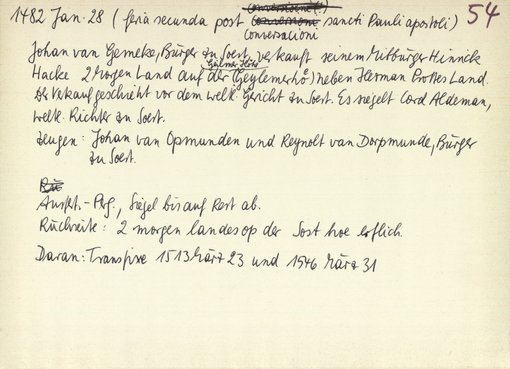 1482 Jan. 28 (feria secunda post Conversacioni sancti Pauli apostoli) 54
Johan van Gemeke, Bürger zu Soest, verkauft seinem Mitbürger Hinrick
Hacke 2 Morgen Land auf der (Geylemerhoe) neben Herman Prottes Land.
Der Verkauf geschieht vor dem weltl. Gericht zu Soest. Es siegelt Cord Aldeman,
weltl. Richter zu Soest.
Zeugen: Johan van Opmunden und Reynolt van Dorpmunde, Bürger
zu Soest.
Ausft.-Perg., Siegel bis auf Rest ab.
Rückseite: 2 morgen landes op der Sost hoe erflich.
Daran: Transfixe 1513 März 23 und 1546 März 31